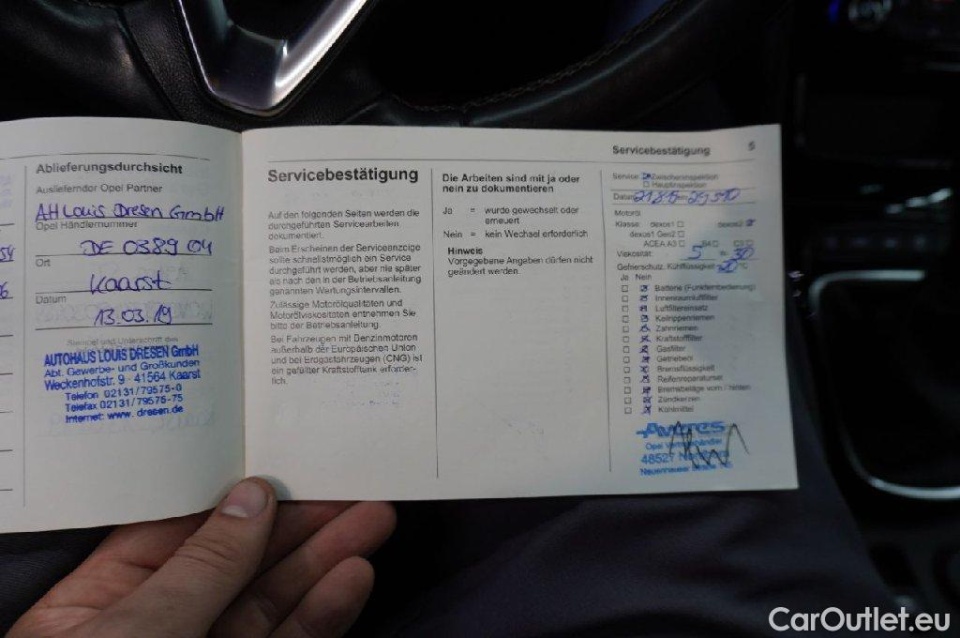 Ablieferungsdurchsicht
Ausliefernder Opel Partner
AH Louis Dresen GmbH
Opel Händlernummer
DE 0389 04
Ort
Kaarst
Datum
13.03.19
Stempel und Unterschrift des
AUTOHAUS LOUIS DRESEN GmbH
Abt. Gewerbe- und Großkunden
Weckenhofstr. 9 - 41564 Kaarst
Telefon 02131/79575-0
Telefax 02131/79575-75
Internet: www.dresen.de
Servicebestätigung
Auf den folgenden Seiten werden die
durchgeführten Servicearbeiten
dokumentiert.
Beim Erscheinen der Serviceanzeige
sollte schnellstmöglich ein Service
durchgeführt werden, aber nie später
als nach den in der Betriebsanleitung
genannten Wartungsintervallen.
Zulässige Motorölqualitäten und
Motorölviskositäten entnehmen Sie
bitte der Betriebsanleitung.
Bei Fahrzeugen mit Benzinmotoren
außerhalb der Europäischen Union
und bei Erdgasfahrzeugen (CNG) ist
ein gefüllter Kraftstofftank erforder-
lich.
Die Arbeiten sind mit ja oder
nein zu dokumentieren
Ja = wurde gewechselt oder
erneuert
Nein = kein Wechsel erforderlich
Hinweis
Vorgegebene Angaben dürfen nicht
geändert werden.
Servicebestätigung 5
Service: Zwischeninspektion
Hauptinspektion
Datum
Motoröl
Klasse: dexos1 dexos2
dexos1 Gen2
ACEA A3 B4 C3
Viskosität: 5 W 30
Gefrierschutz, Kühlflüssigkeit °C
Ja Nein
Batterie (Funkfernbedienung)
Innenraumluftfilter
Luftfiltereinsatz
Keilrippenriemen
Zahnriemen
Kraftstofffilter
Gasfilter
Getriebeöl
Bremsflüssigkeit
Reifenreparaturset
Bremsbeläge vorn / hinten
Zündkerzen
Kühlmittel
Opel
48527
Neuenhauser
CarOutlet.eu